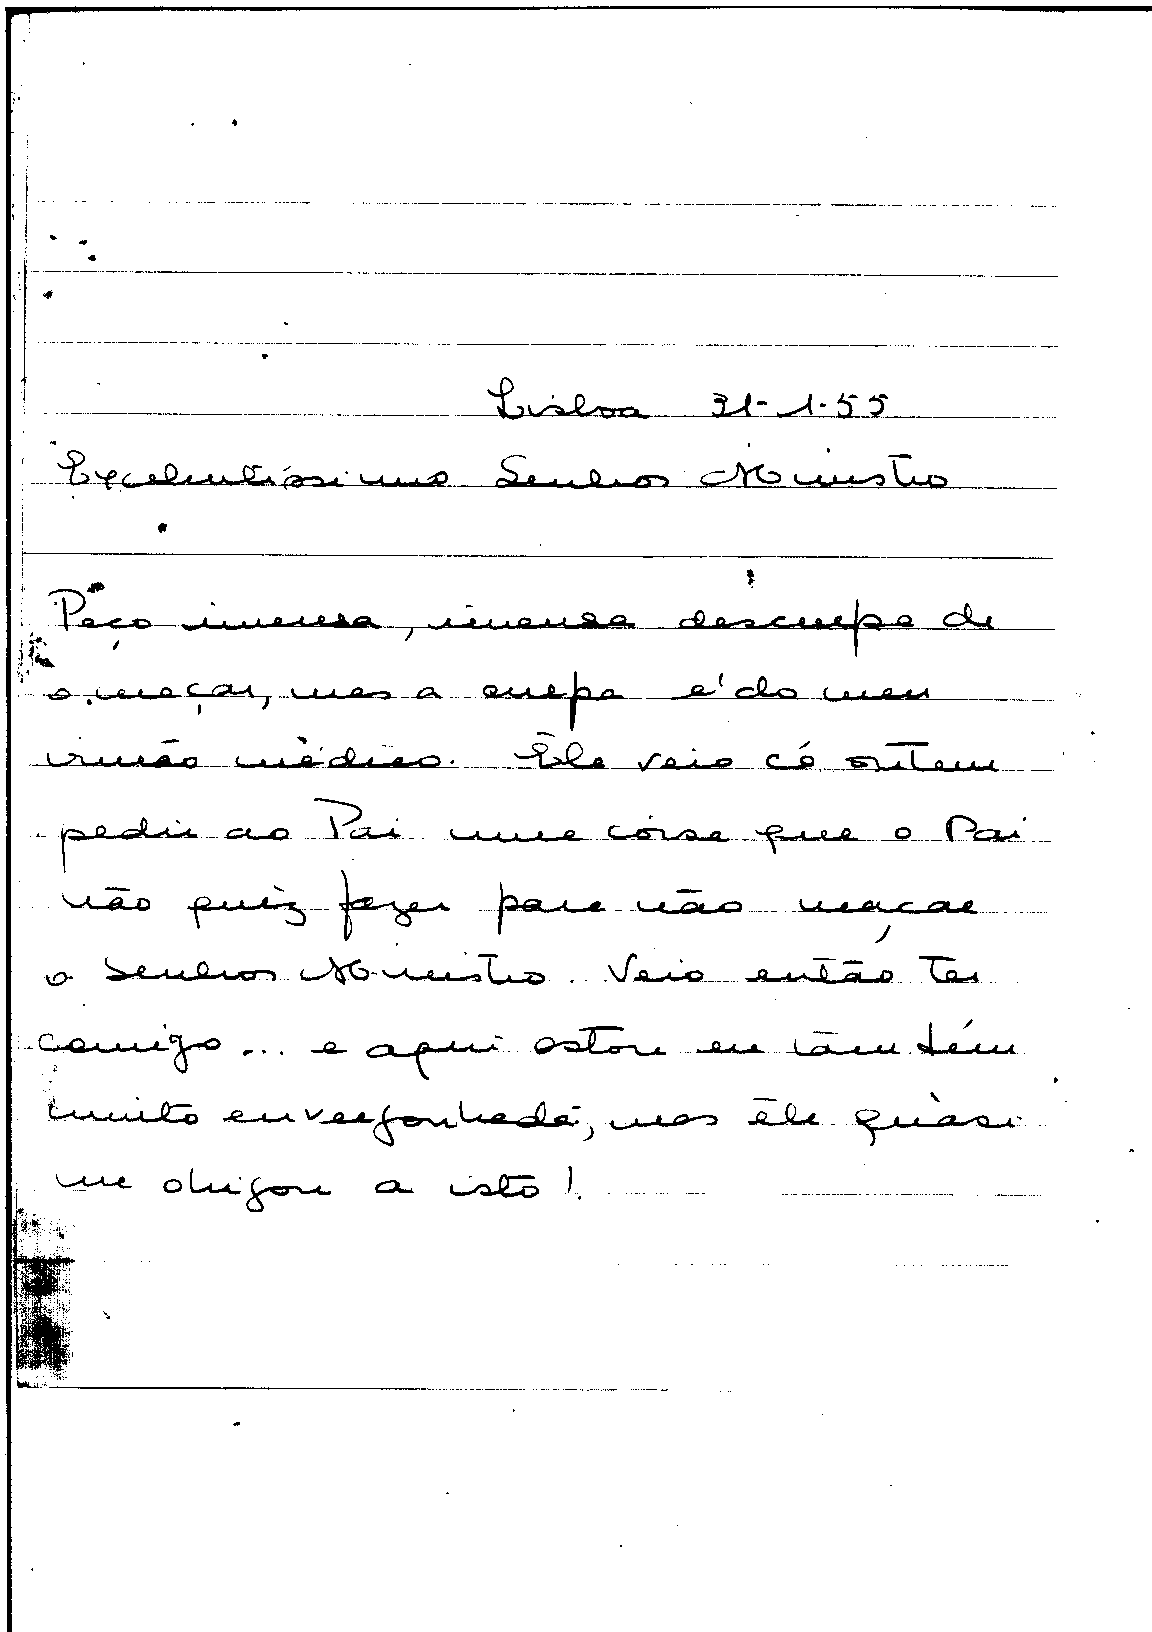 Lisboa 31-1-55
Excelentíssimo Senhor Ministro
Peço imensa, imensa desculpa de
o maçar, mas a culpa é do meu
irmão médico. Êle veio cá ontem
pedir ao Pai uma coisa que o Pai
não quiz fazer para não maçar
o Senhor Ministro. Veio então ter
comigo... e aqui estou eu tãm bém
muito envergonhada, mas êle quàsi
me obrigou a isto!